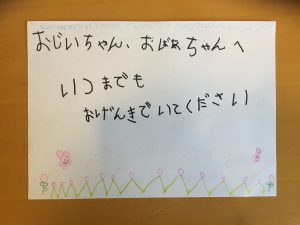 おじいちゃん、おばあちゃんへ
いつまでも
おげんきでいてください